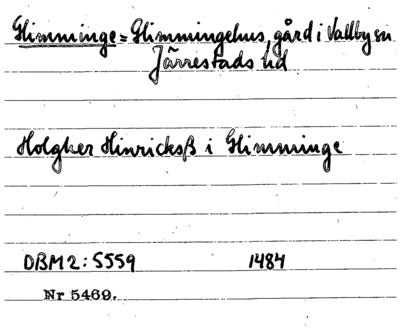 Glimminge = Glimmingehus, gård i Vallby sn
Järrestads hd
Holgher Hinricksß i Glimminge
DBM 2: 5559 1484
Nr 5469.